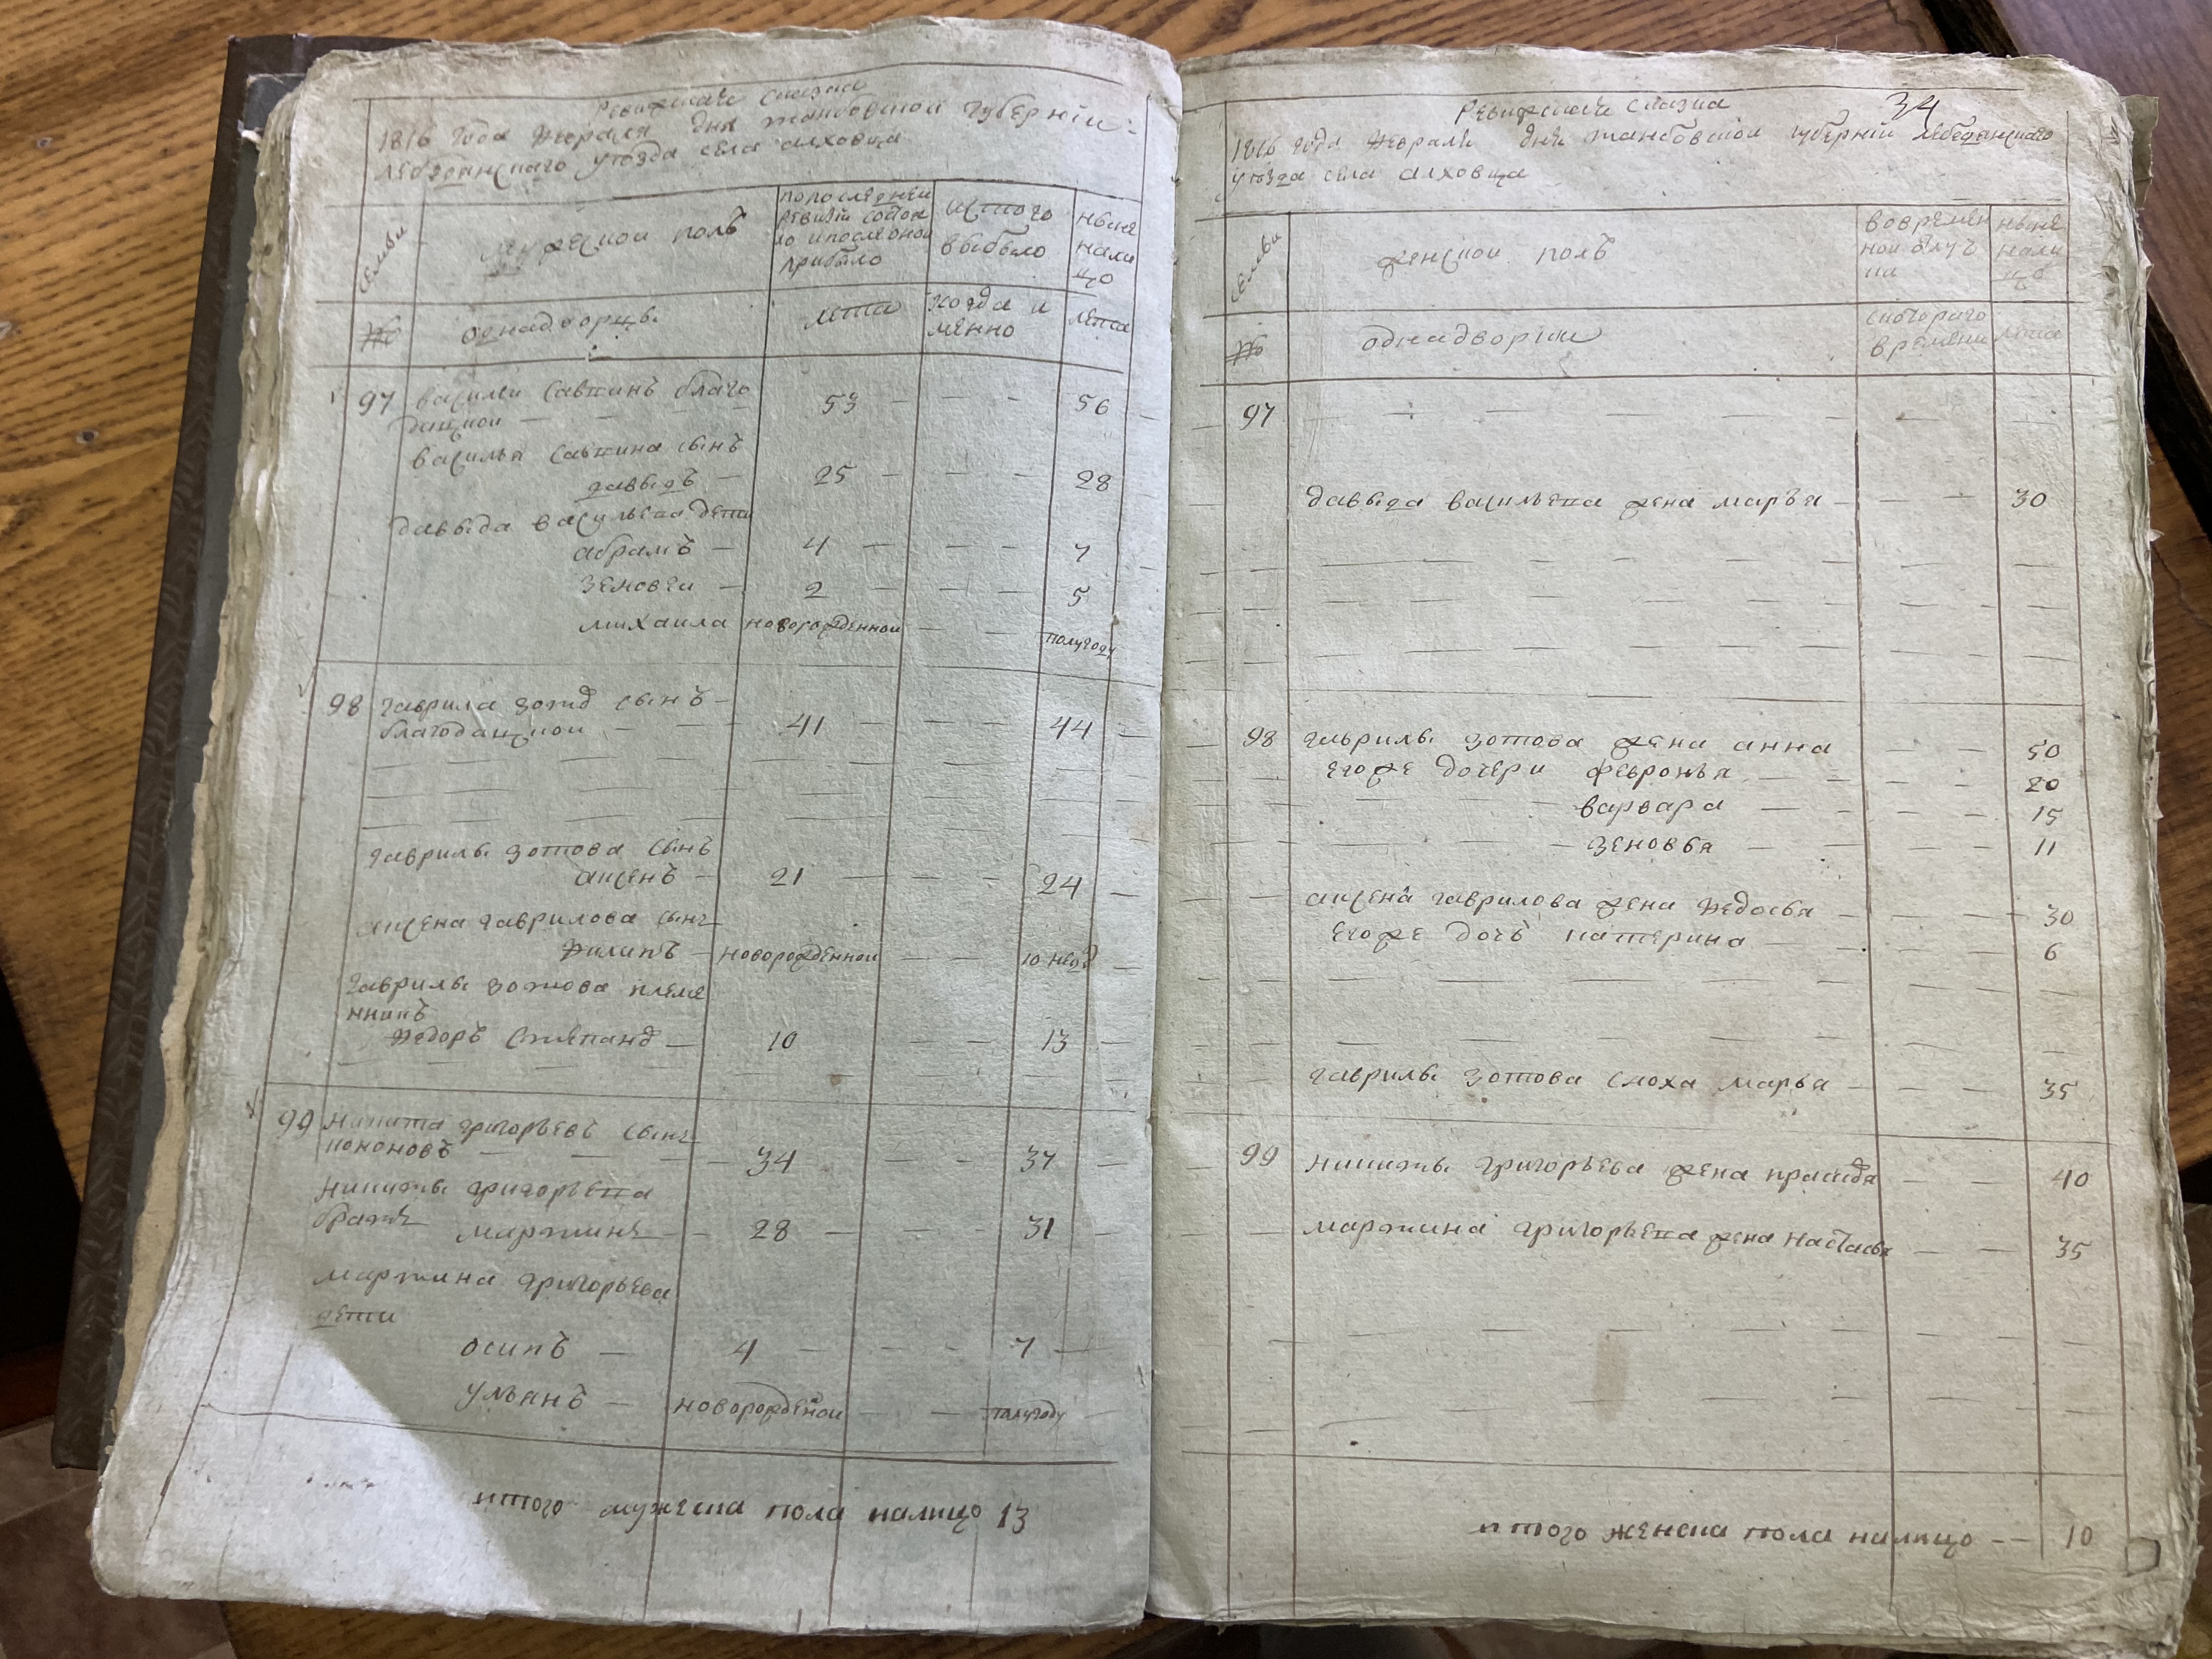 ревизская сказка
1816 года февраля дня тамбовской губернии
лебедянскаго уезда села алховца
семьи
мужескои полъ
попоследнеи ревизіи состояло ипослеоной прибыло
исъ того выбыло
ныне налицо
№
однадворцы
лета
когда имянно
лета
97 василеи савкинъ благо
дацкои — 53 — — — 56
василья савкина сынъ
давыдъ — 25 — — — 28
давыда васильева дети
абрамъ — 4 — — — 7
зеновеи — 2 — — — 5
михаила новорожденнои — — полугоду
98 гаврила зотов сынъ —
благодацкои — 41 — — — 44
гаврилы зотова сынъ
аксенъ — 21 — — — 24
аксена гаврилова сынъ
филипъ — новорожденнои — — 10 нед
гаврилы зотова племе
нникъ
федоръ степанов — 10 — — 13
99 никита григорьевъ сынъ
кононовъ — 34 — — 37
никиты григорьева
братъ мартинъ — 28 — — — 31
мартина григорьева
дети
осипъ — 4 — — — 7
ульянъ — новорожденои — — полугоду
итого мужеска пола налицо 13
34
ревизская сказка
1816 года февраля дня тамбовской губерніи лебедянскаго
уезда села алховца
семьи
женскои полъ
вовременнои отлучки
ныне налицо
№
однадворки
скотораго времени
лета
97
давыда васильева жена марья — — — 30
98 гаврилы зотова жена анна — — 50
егоже дочери февронья — — 20
варвара — — 15
зеновья — — 11
аксена гаврилова жена федосья — — 30
егоже дочь катерина — — 6
гаврилы зотова сноха марья — — 35
99 никиты григорьева жена — — 40
мартина григорьева жена настасья — — 35
итого женска пола налицо — — 10